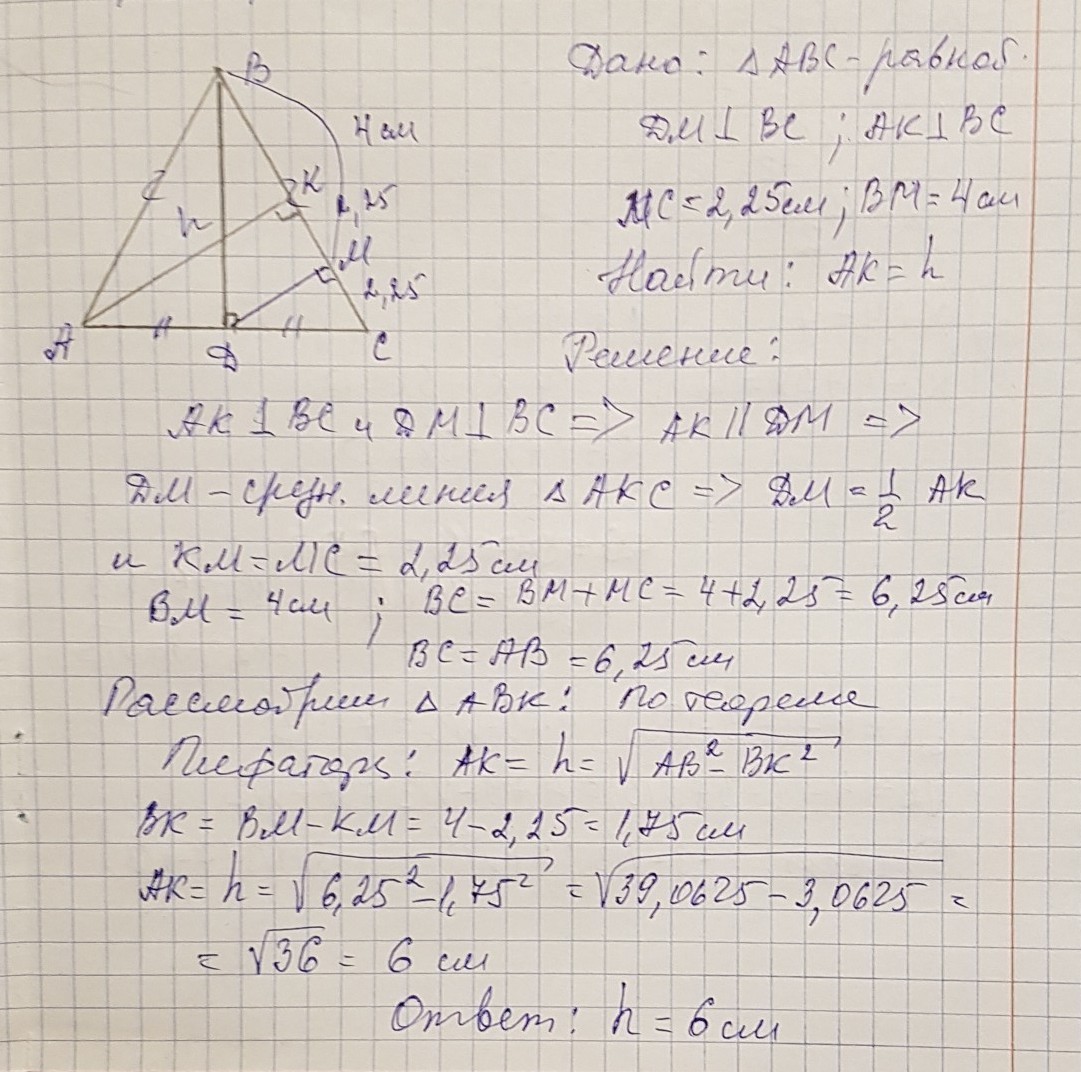 Дано: △ ABC - равноб.
ДМ ⊥ BC ; AK ⊥ BC
MC = 2,25 см ; BM = 4 см
Найти: AK = h
Решение:
B
4 см
K
2,25
h
M
2,25
A
Д
C
AK ⊥ BC и ДМ ⊥ BC => AK || ДМ =>
ДМ - средн. линия △ AKC => ДМ = 1/2 AK
и KM = MC = 2,25 см
BM = 4 см ; BC = BM + MC = 4 + 2,25 = 6,25 см
BC = AB = 6,25 см
Рассмотрим △ ABK: по теореме
Пифагора: AK = h = √AB² - BK²
BK = BM - KM = 4 - 2,25 = 1,75 см
AK = h = √6,25² - 1,75² = √39,0625 - 3,0625 =
= √36 = 6 см
Ответ: h = 6 см